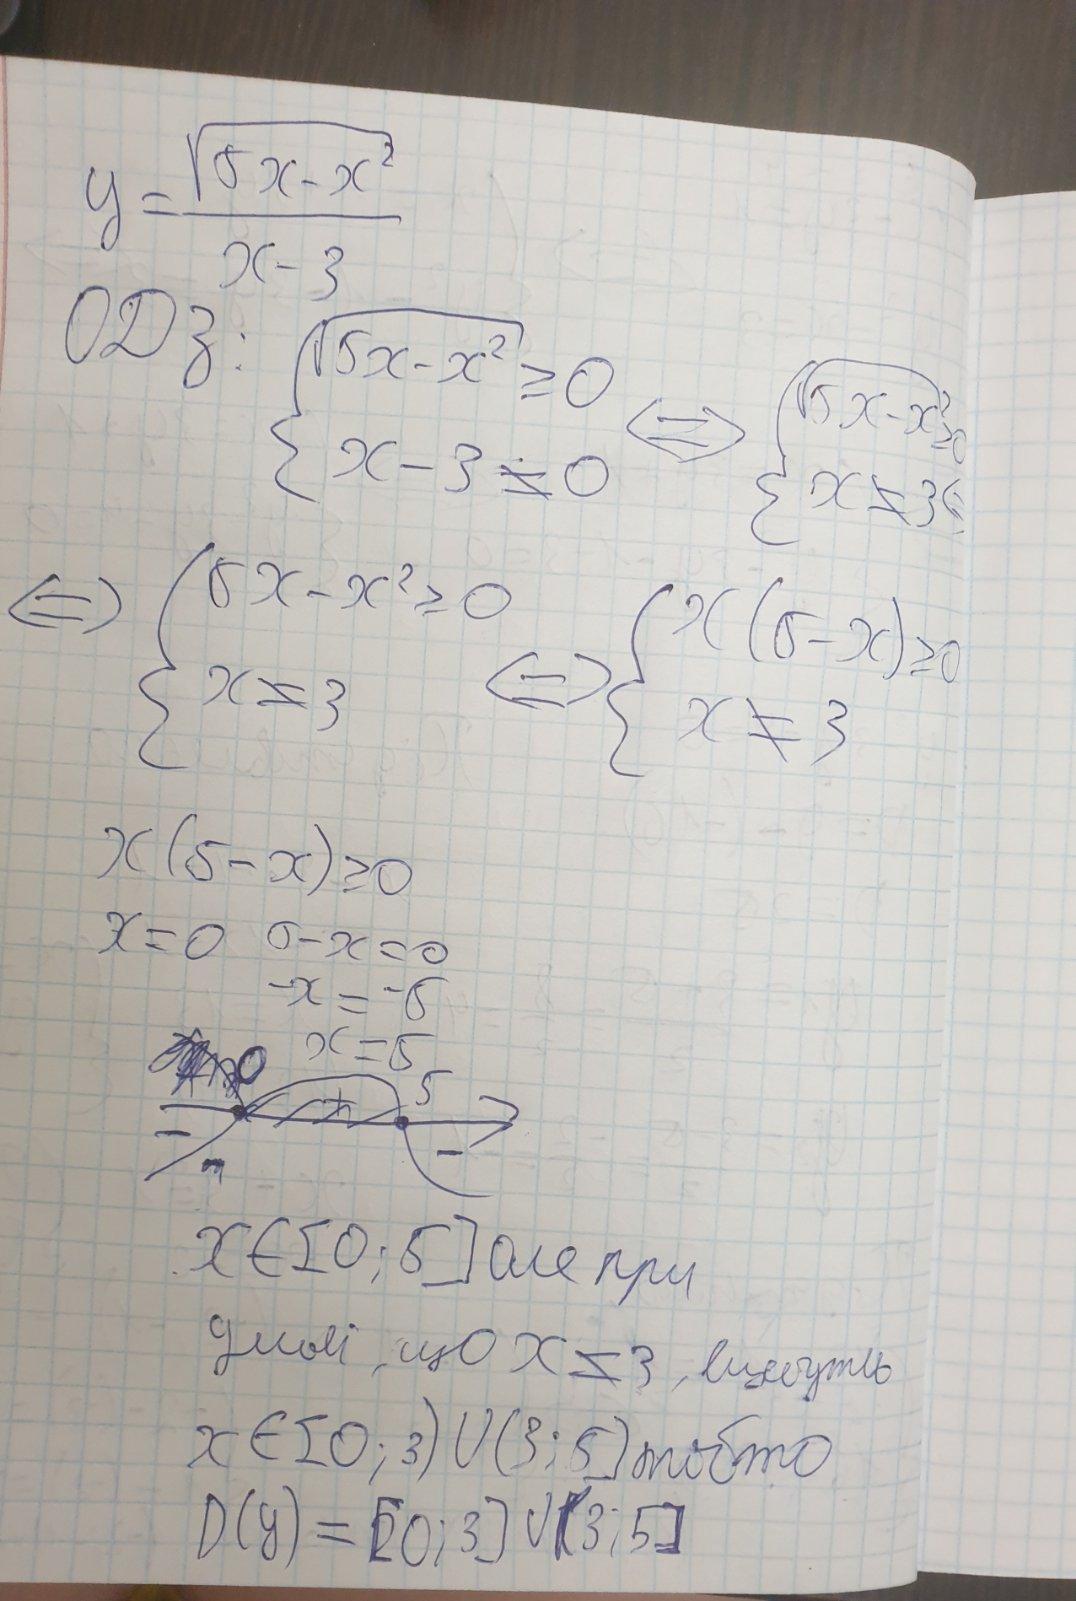 y = √(5x - x²) / (x - 3)
ОДЗ: { √(5x - x²) ≥ 0 ; x - 3 ≠ 0 <=> { √(5x - x²) ≥ 0 ; x ≠ 3 <=>
<=> { 5x - x² ≥ 0 ; x ≠ 3 <=> { x(5 - x) ≥ 0 ; x ≠ 3
x(5 - x) ≥ 0
x = 0 5 - x = 0
-x = -5
x = 5
0 5
- + -
x ∈ [0; 5] але при
умові, що x ≠ 3,
x ∈ [0; 3) ∪ (3; 5] тобто
D(y) = [0; 3] ∪ (3; 5]